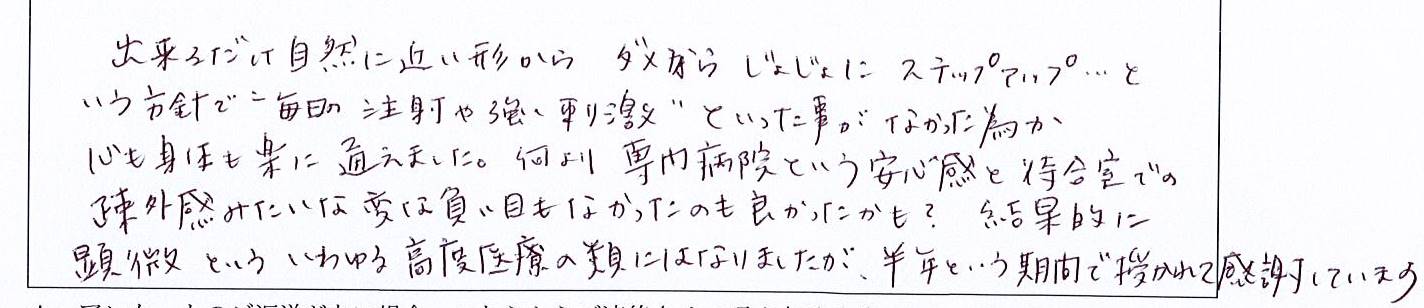 出来るだけ自然に近い形から ダメなら じょじょに ステップアップ…と
いう方針で “毎日の注射や強い刺激” といった事がなかった為か
心も身体も楽に通えました。何より 専門病院という安心感と待合室での
疎外感みたいな変な負い目もなかったのも良かったかも? 結果的に
顕微という いわゆる高度医療の類にはなりましたが、半年という期間で授かれて感謝しています